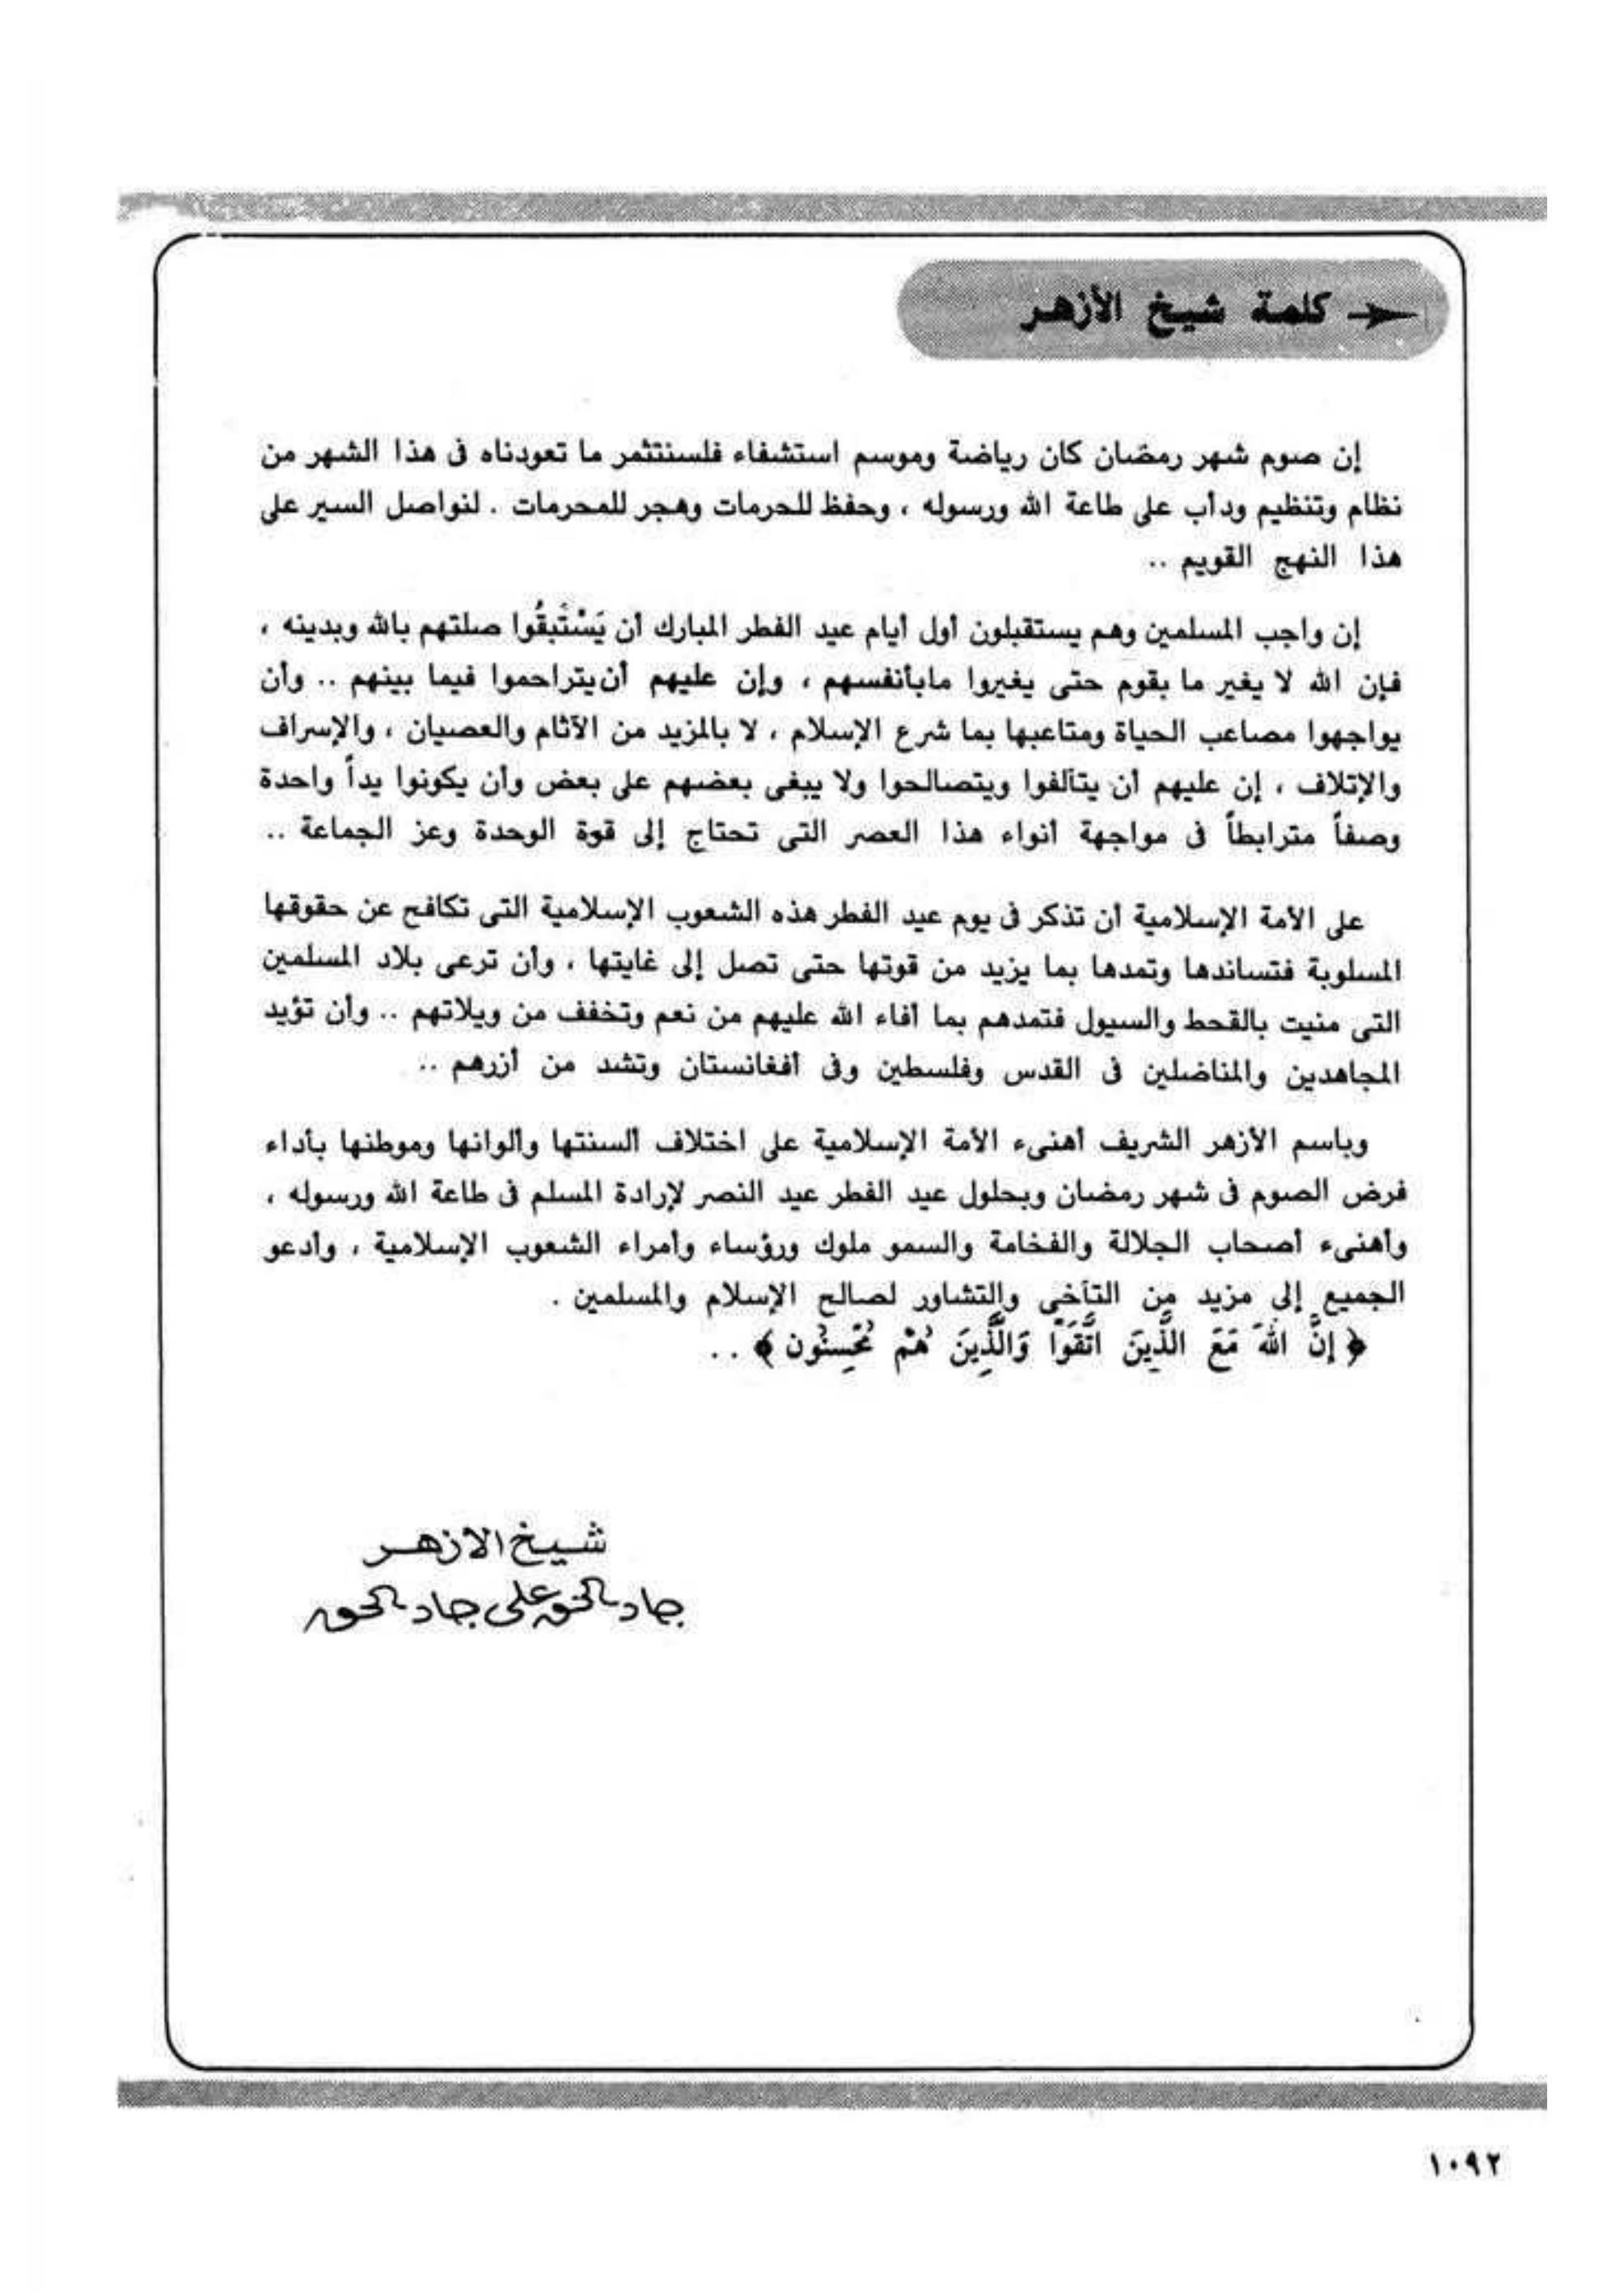 كلمة شيخ الأزهر
إن صوم شهر رمضان كان رياضة وموسم استشفاء فلسنتثمر ما تعودناه فى هذا الشهر من
نظام وتنظيم ودأب على طاعة الله ورسوله ، وحفظ للحرمات وهجر للمحرمات . لنواصل السير على
هذا النهج القويم ..
إن واجب المسلمين وهم يستقبلون أول أيام عيد الفطر المبارك أن يَسْتَبِقُوا صلتهم بالله وبدينه ،
فإن الله لا يغير ما بقوم حتى يغيروا مابأنفسهم ، وإن عليهم أن يتراحموا فيما بينهم .. وأن
يواجهوا مصاعب الحياة ومتاعبها بما شرع الإسلام ، لا بالمزيد من الآثام والعصيان ، والإسراف
والإتلاف ، إن عليهم أن يتألفوا ويتصالحوا ولا يبغى بعضهم على بعض وأن يكونوا يداً واحدة
وصفاً مترابطاً فى مواجهة أنواء هذا العصر التى تحتاج إلى قوة الوحدة وعز الجماعة ..
على الأمة الإسلامية أن تذكر فى يوم عيد الفطر هذه الشعوب الإسلامية التى تكافح عن حقوقها
المسلوبة فتساندها وتمدها بما يزيد من قوتها حتى تصل إلى غايتها ، وأن ترعى بلاد المسلمين
التى منيت بالقحط والسيول فتمدهم بما أفاء الله عليهم من نعم وتخفف من ويلاتهم .. وأن تؤيد
المجاهدين والمناضلين فى القدس وفلسطين وفى أفغانستان وتشد من أزرهم ..
وباسم الأزهر الشريف أهنىء الأمة الإسلامية على اختلاف ألسنتها وألوانها وموطنها بأداء
فرض الصوم فى شهر رمضان وبحلول عيد الفطر عيد النصر لإرادة المسلم فى طاعة الله ورسوله ،
وأهنىء أصحاب الجلالة والفخامة والسمو ملوك ورؤساء وأمراء الشعوب الإسلامية ، وأدعو
الجميع إلى مزيد من التآخى والتشاور لصالح الإسلام والمسلمين .
﴿ إِنَّ اللَّهَ مَعَ الَّذِينَ اتَّقَوْا وَالَّذِينَ هُمْ مُحْسِنُون ﴾ ..
شيخ الازهر
جاد الحق على جاد الحق
١٠٩٢